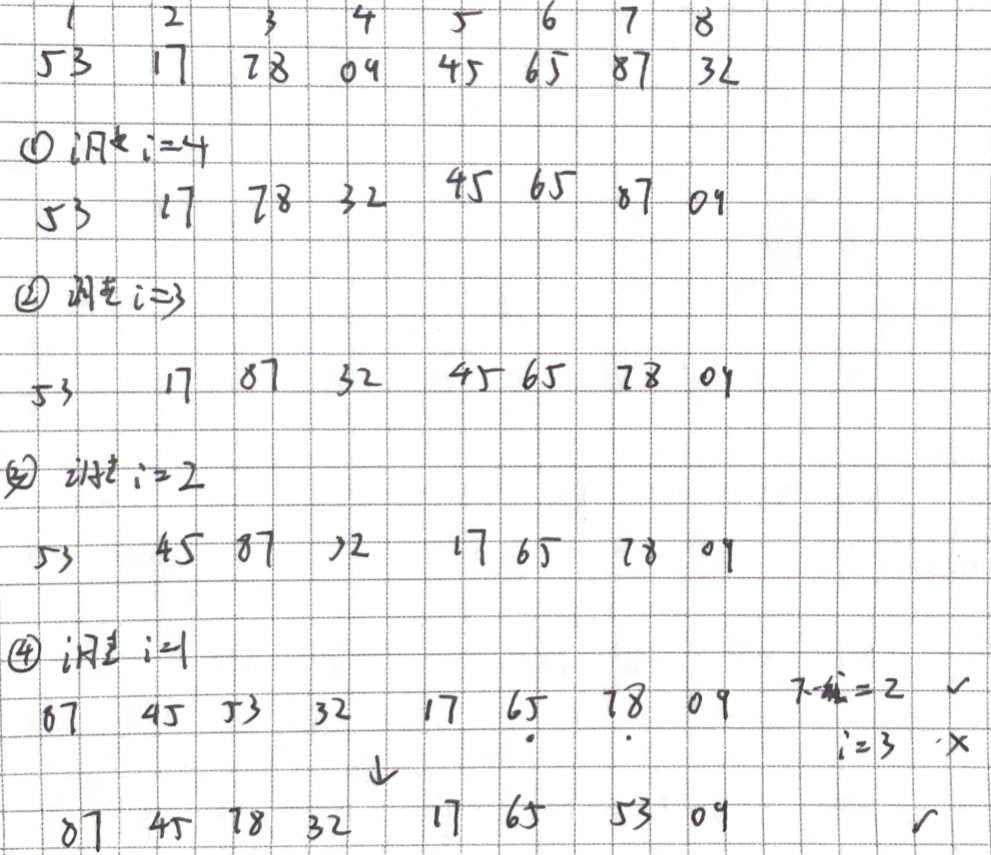 1 2 3 4 5 6 7 8
53 17 78 09 45 65 87 32
① 调整 i=4
53 17 78 32 45 65 87 09
② 调整 i=3
53 17 87 32 45 65 78 09
③ 调整 i=2
53 45 87 32 17 65 78 09
④ 调整 i=1
87 45 53 32 17 65 78 09 i=2 ✓
i=3 ×
↓
87 45 78 32 17 65 53 09 ✓